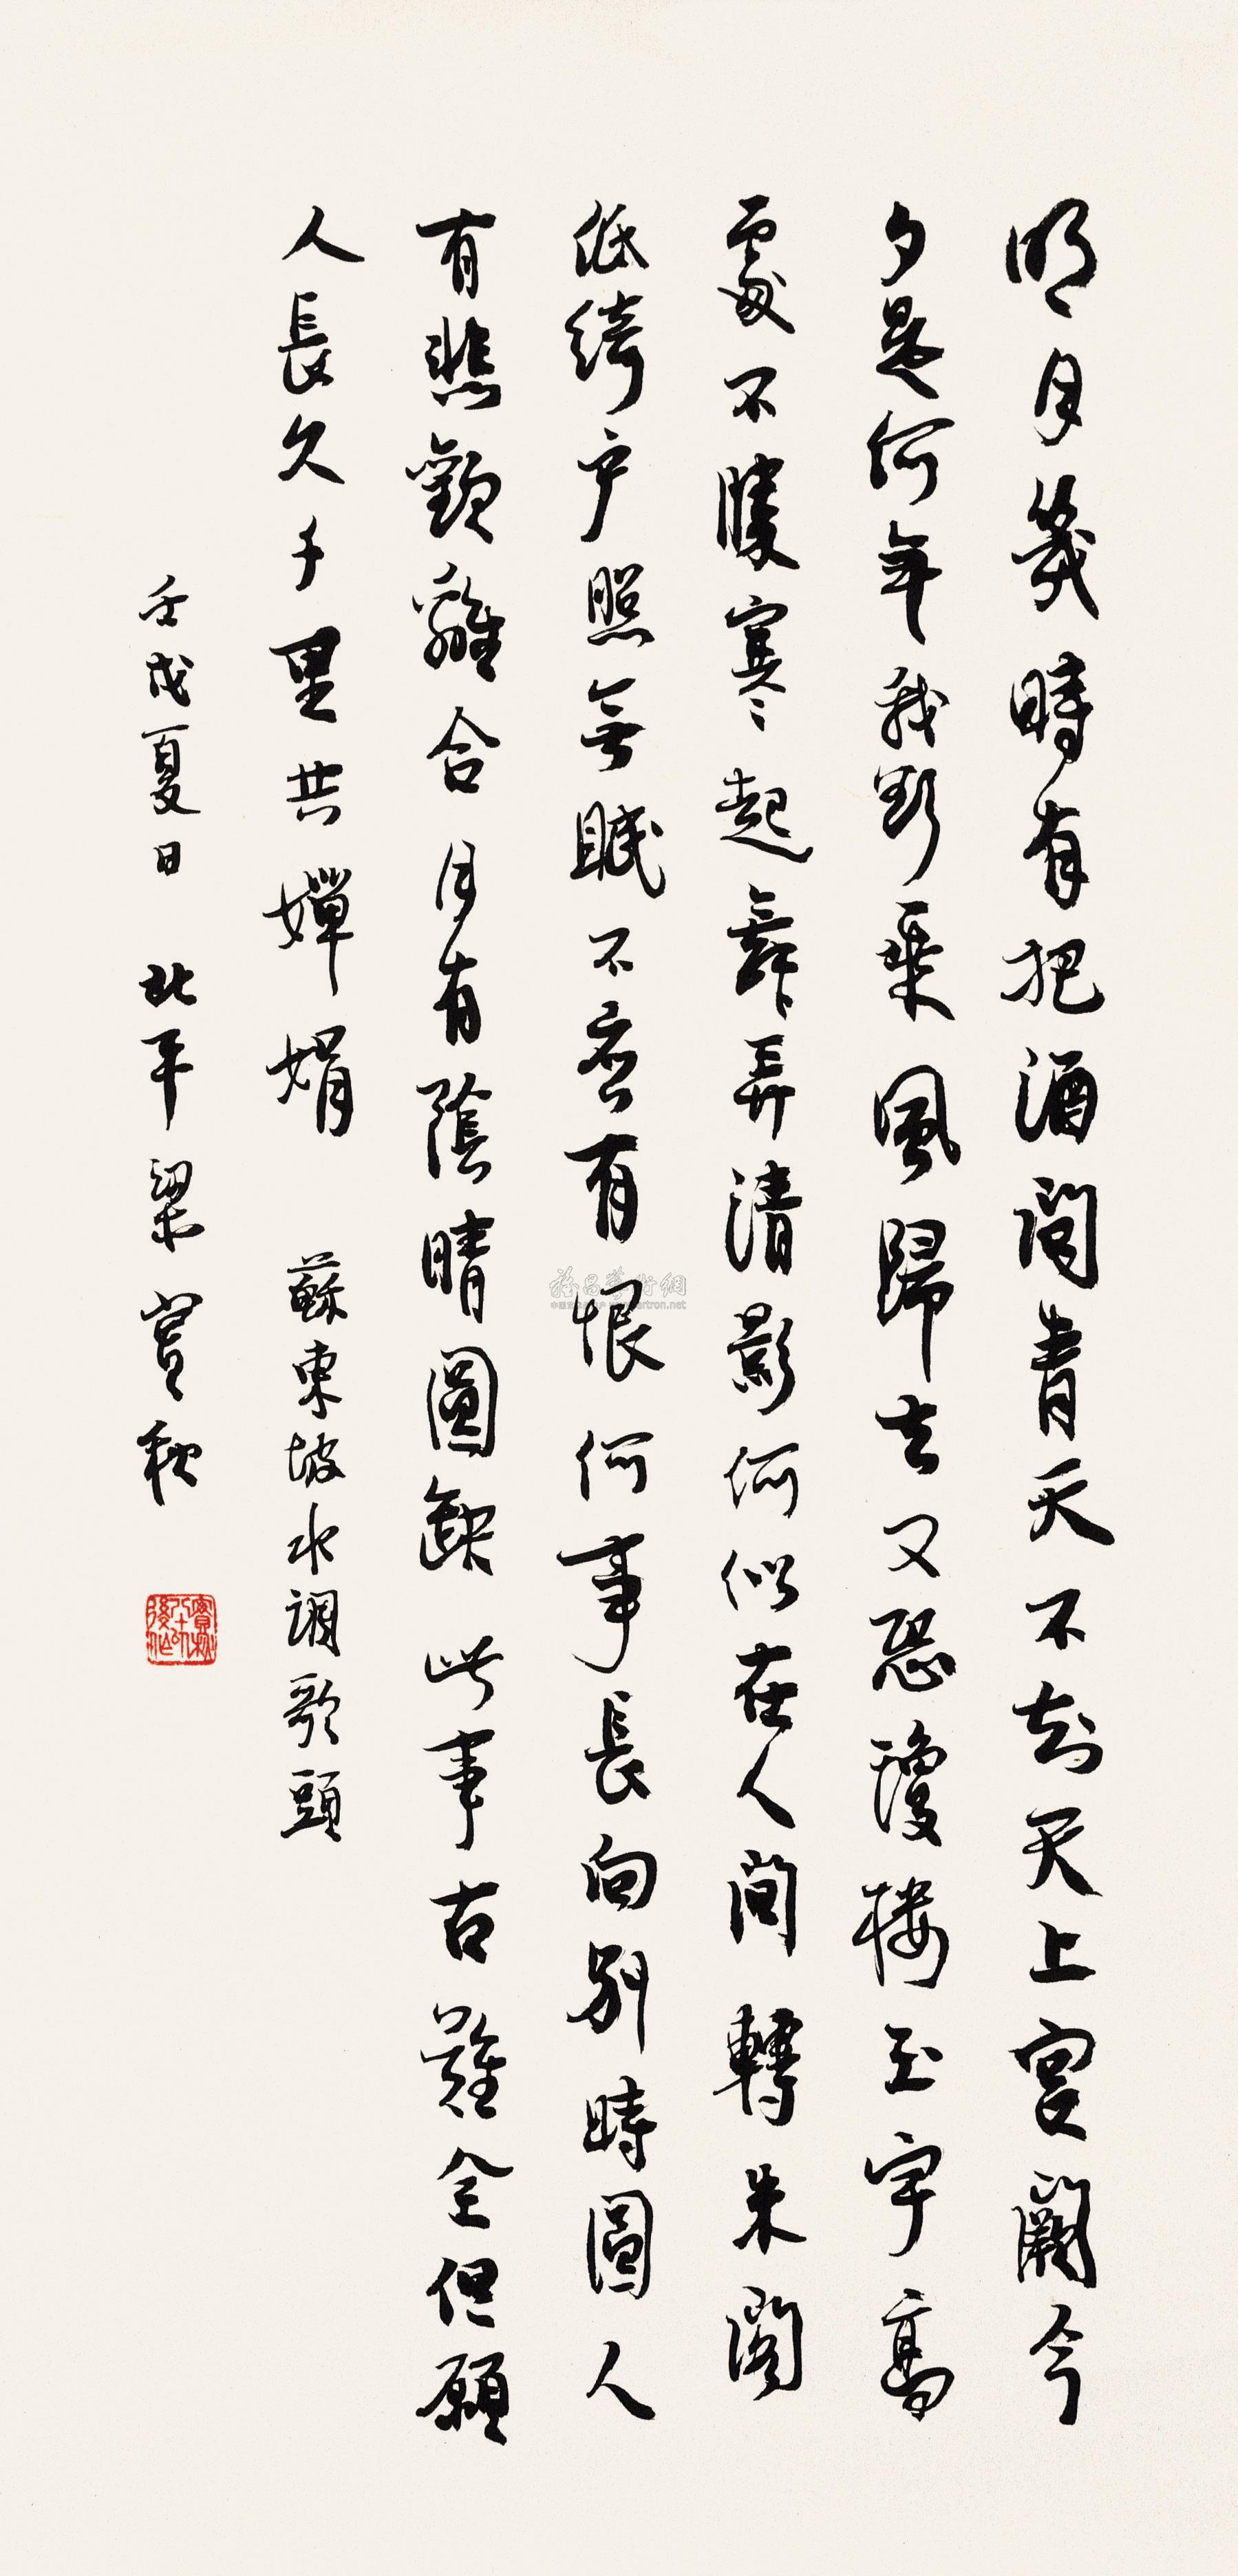 明月幾時有把酒問青天不知天上宮闕今
夕是何年我欲乘風歸去又恐瓊樓玉宇高
處不勝寒起舞弄清影何似在人間轉朱閣
低綺户照無眠不應有恨何事長向別時圓人
有悲歡離合月有陰晴圓缺此事古難全但願
人長久千里共嬋娟 蘇東坡水調歌頭
壬戌夏日 北平梁實秋